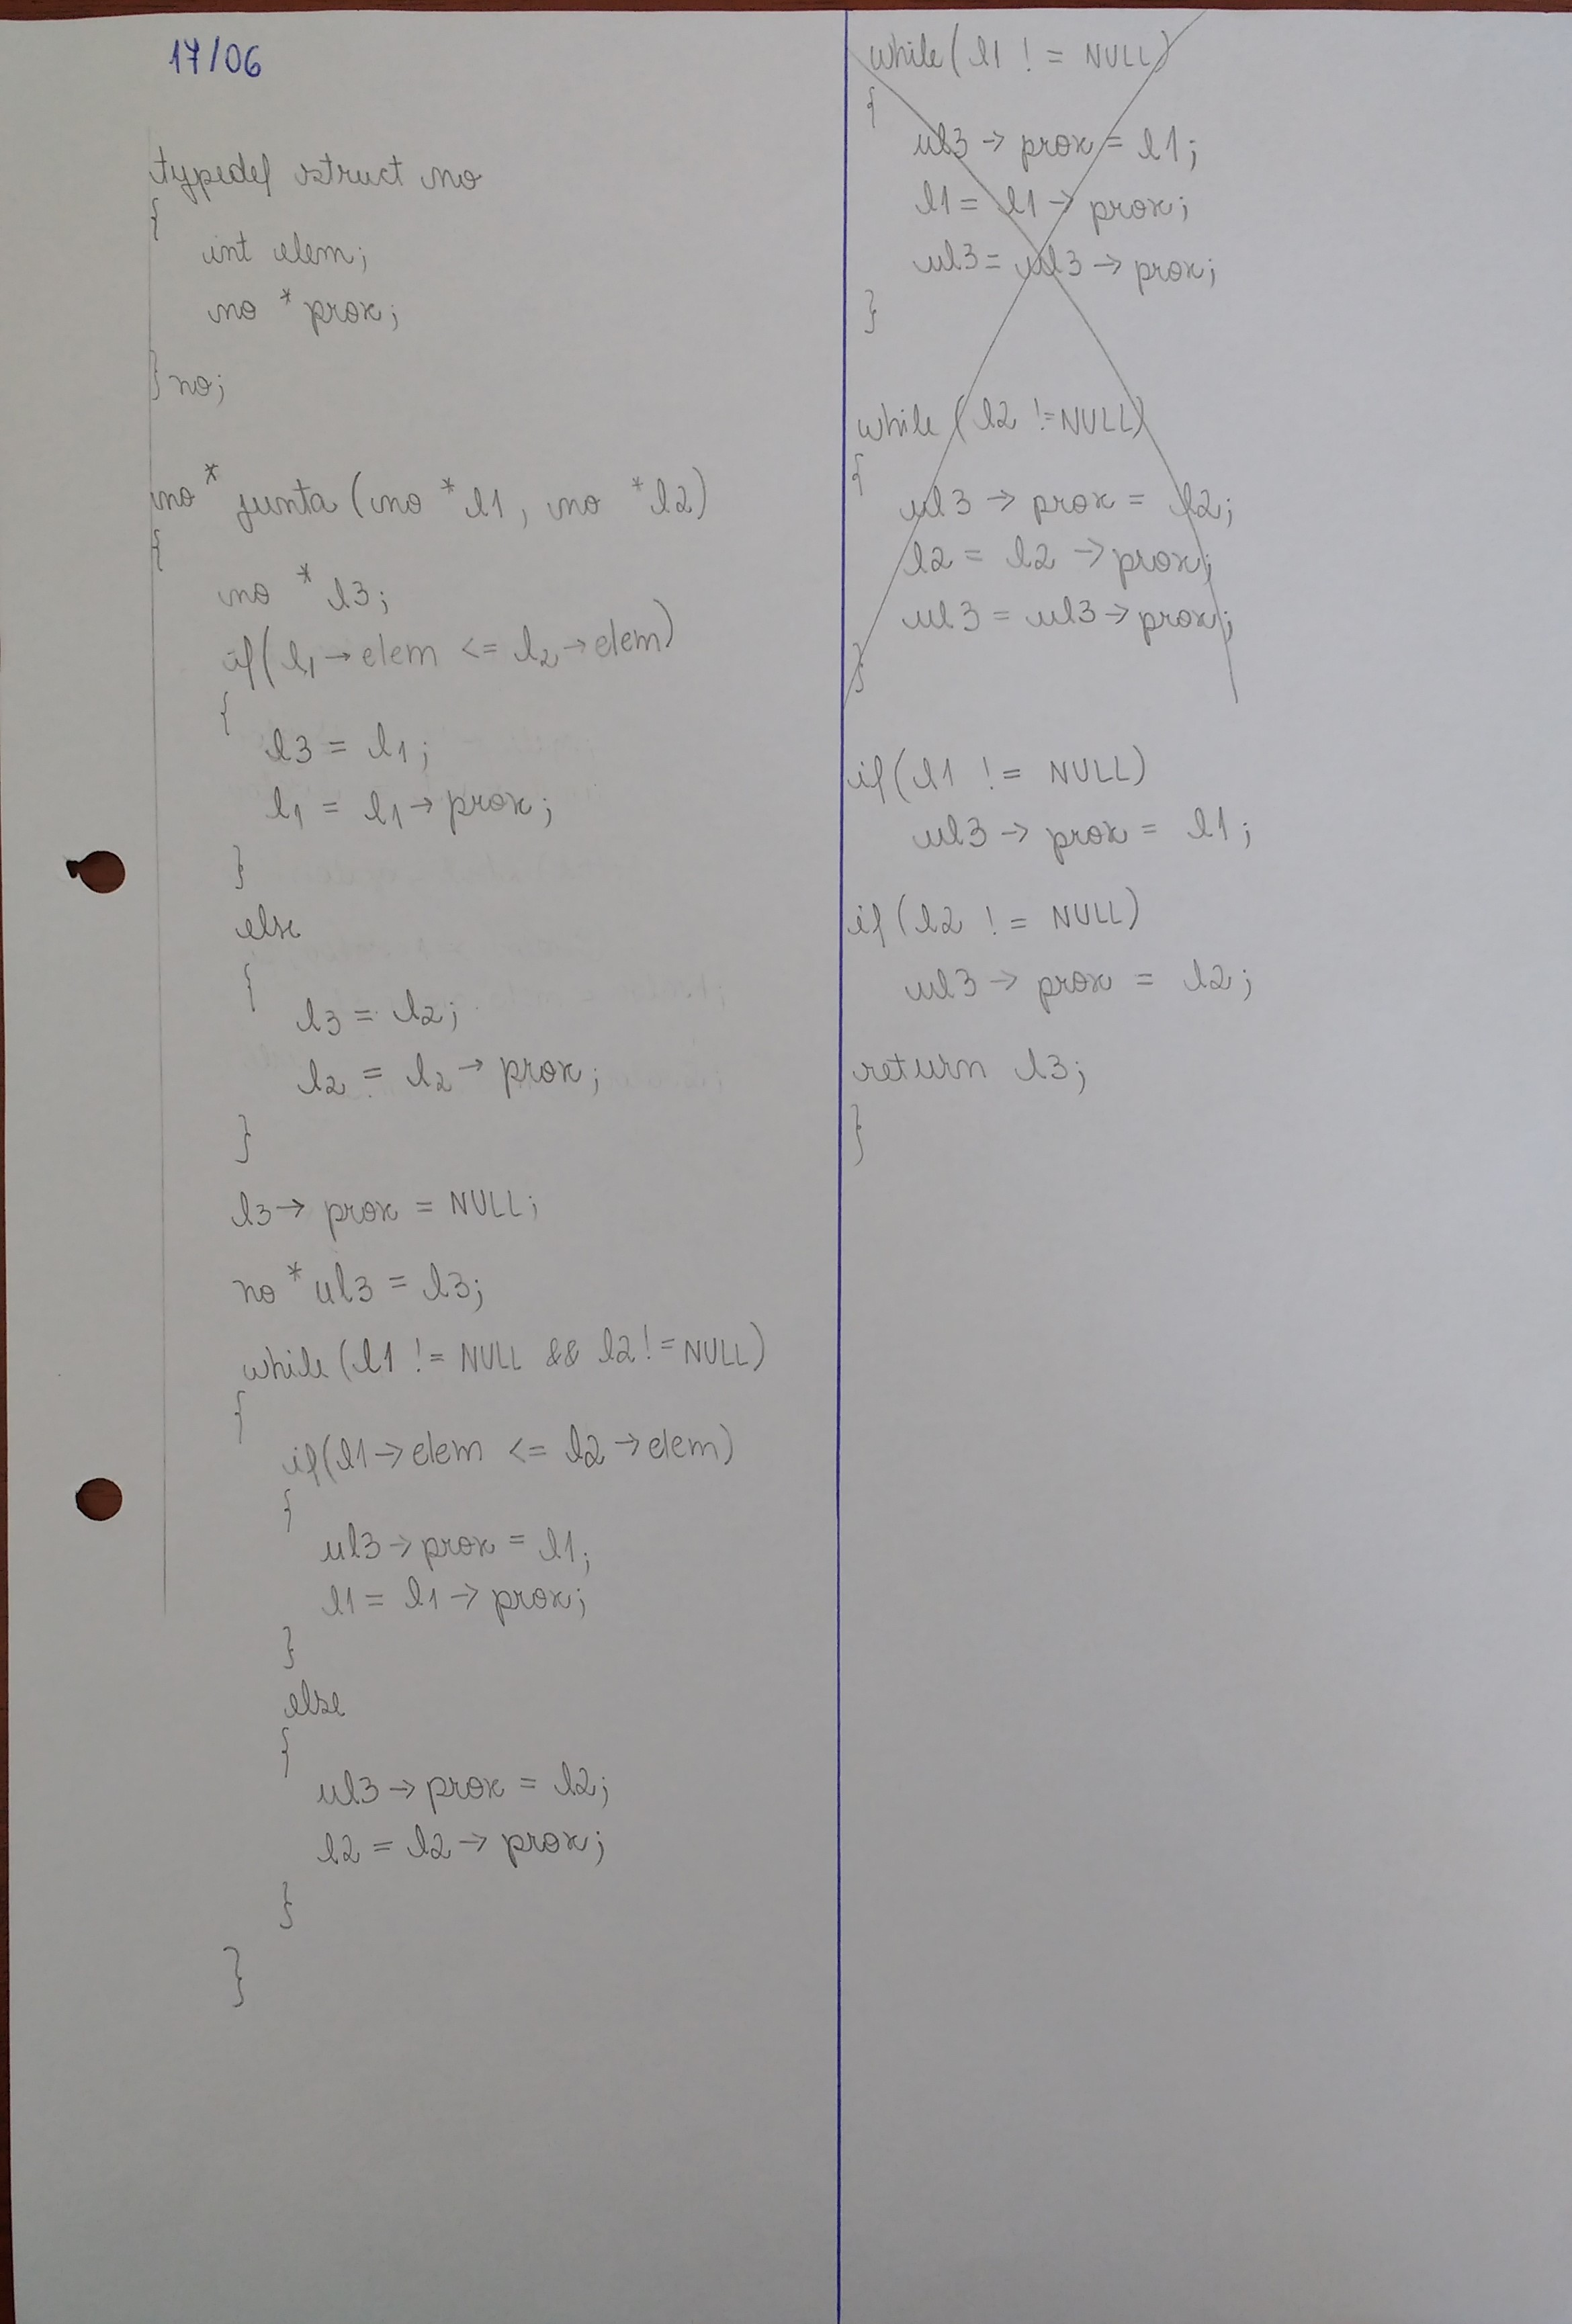 17/06
typedef struct no
{
int elem;
no * prox;
} no;
no * junta (no * l1, no * l2)
{
no * l3;
if(l1 → elem <= l2 → elem)
{
l3 = l1;
l1 = l1 → prox;
}
else
{
l3 = l2;
l2 = l2 → prox;
}
l3 → prox = NULL;
no * ul3 = l3;
while (l1 != NULL && l2 != NULL)
{
if(l1 → elem <= l2 → elem)
{
ul3 → prox = l1;
l1 = l1 → prox;
}
else
{
ul3 → prox = l2;
l2 = l2 → prox;
}
}
while (l1 != NULL)
{
ul3 → prox = l1;
l1 = l1 → prox;
ul3 = ul3 → prox;
}
while (l2 != NULL)
{
ul3 → prox = l2;
l2 = l2 → prox;
ul3 = ul3 → prox;
}
if(l1 != NULL)
ul3 → prox = l1;
if(l2 != NULL)
ul3 → prox = l2;
return l3;
}